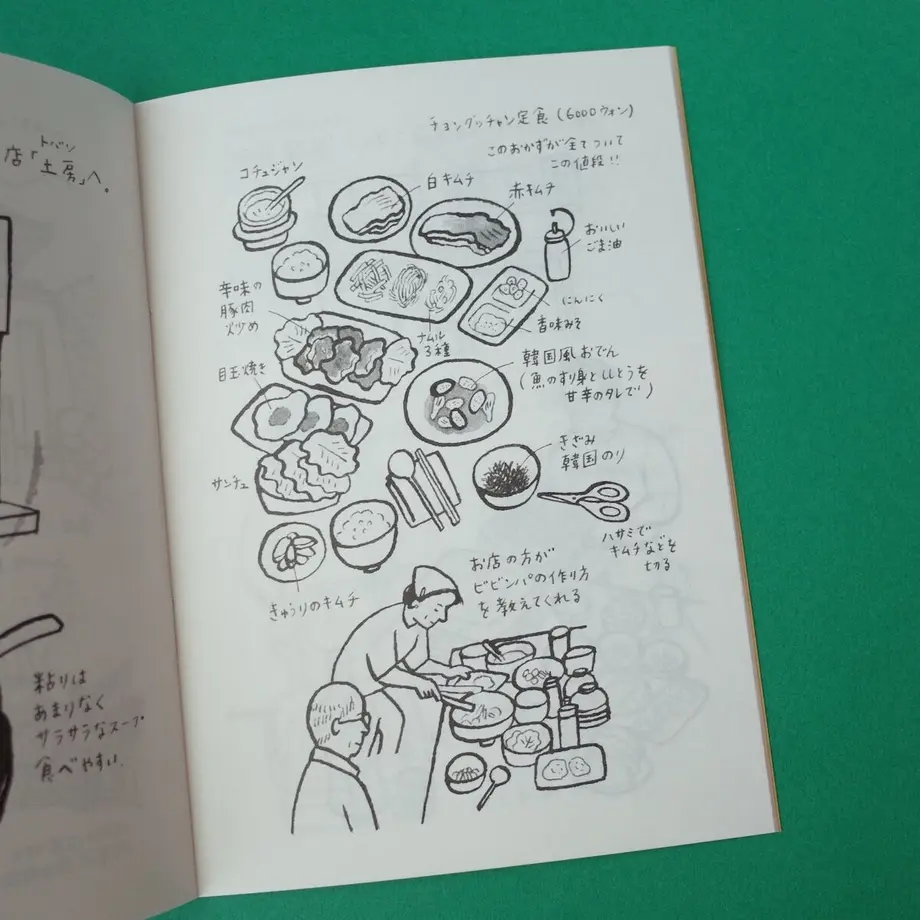 トバン
店「土房」へ。
粘りは
あまりなく
サラサラなスープ
食べやすい.
チョングッチャン定食(6000ウォン)
このおかずが全てついて
この値段!!
コチュジャン
白キムチ
赤キムチ
おいしい
ごま油
辛味の
豚肉
炒め
ナムル
3種
にんにく
香味みそ
目玉焼き
韓国風おでん
(魚のすり身とししとうを
甘辛のタレで)
サンチュ
きざみ
韓国のり
ハサミで
キムチなどを
切る
きゅうりのキムチ
お店の方が
ビビンパの作り方
を教えてくれる